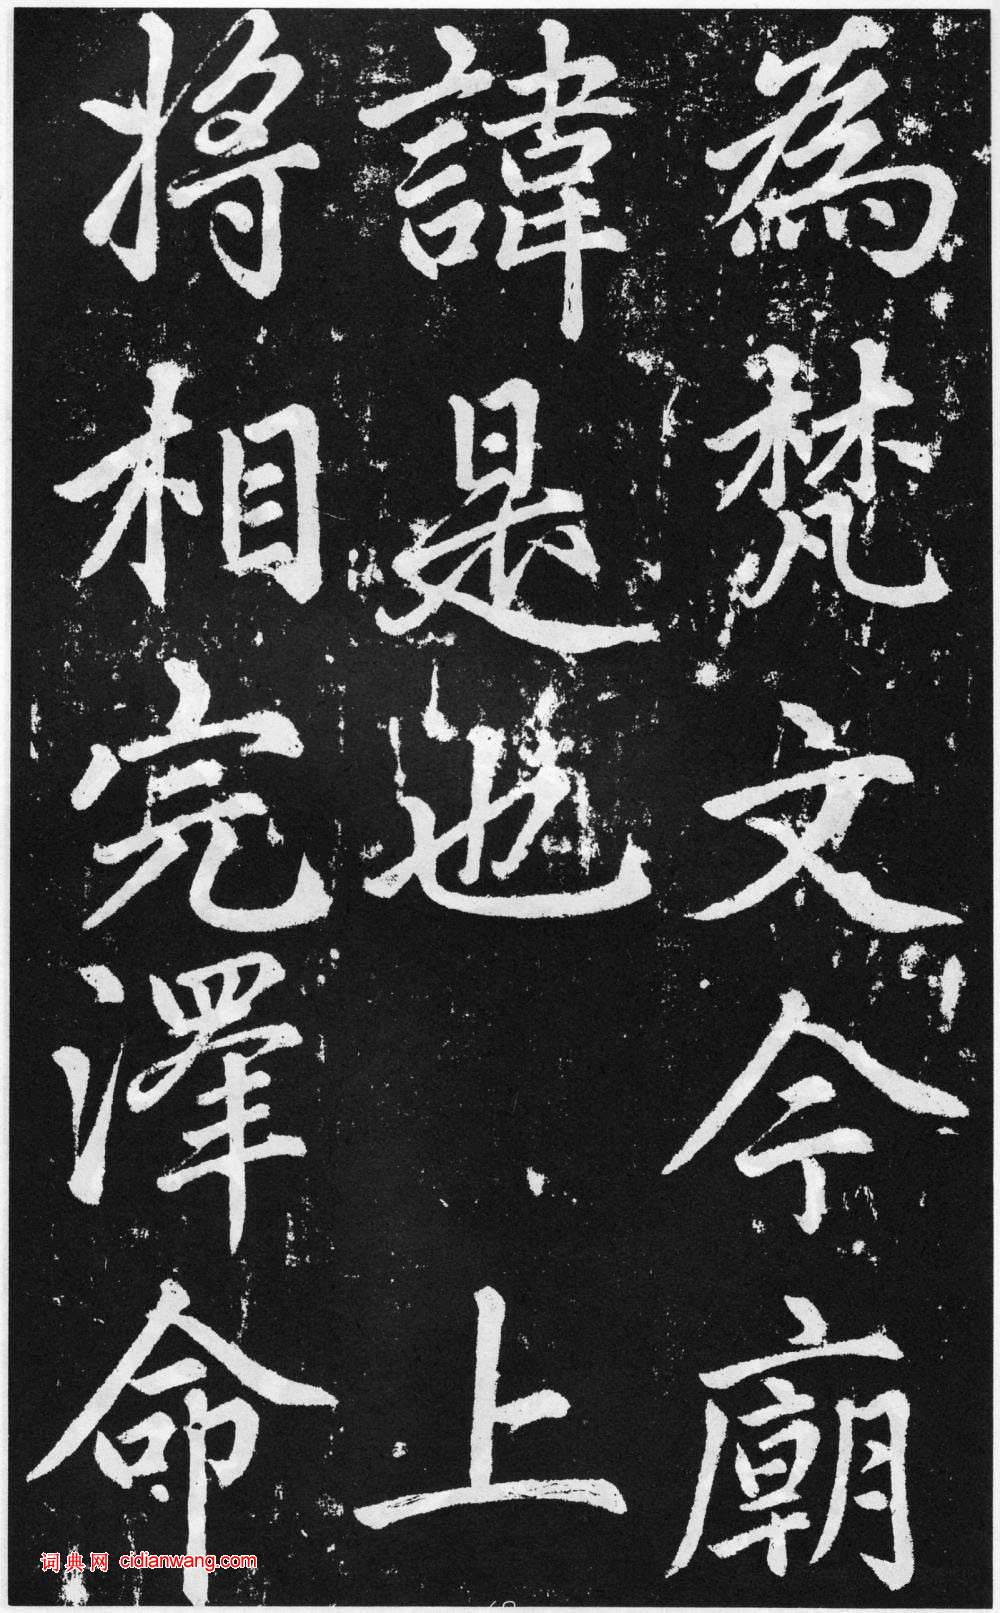 為梵文今廟
諱是也 上
將相完澤命
词典网 cidianwang.com